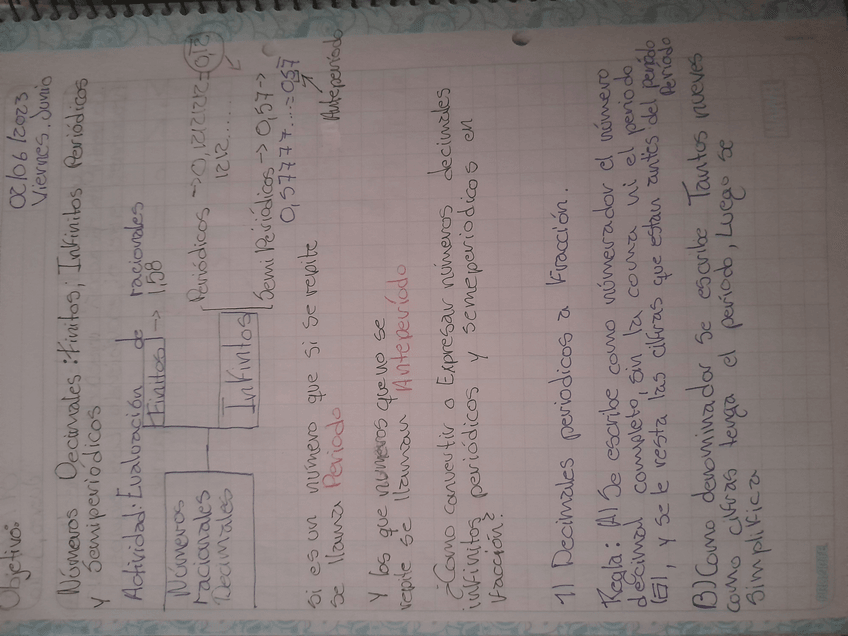 Objetivo:
02/06/2023
Viernes. Junio
Números Decimales: Finitos; Infinitos Periódicos
y Semiperiódicos
Actividad: Evaluación de racionales
Números
racionales
Decimales
Finitos → 1,58
Infinitos
Periódicos → 0,12121212=0,1̅2̅
1212......
Semi Periódicos → 0,57 →
0,57777...=0,57̅
Anteperíodo
Si es un número que si se repite
se llama Periodo
Y los que números que no se
repite se llaman Anteperíodo
¿Como convertir o Expresar números decimales
infinitos periódicos y semeperiodicos en
fracción?
1) Decimales periodicos a Fracción.
Regla: (A) Se escribe como númerador el número
decimal completo, sin la coma ni el periodo
, y se le resta las cifras que estan antes del período
Período
(B) Como denominador se escribe Tantos nueves
como cifras tenga el período, Luego se
Simplifica